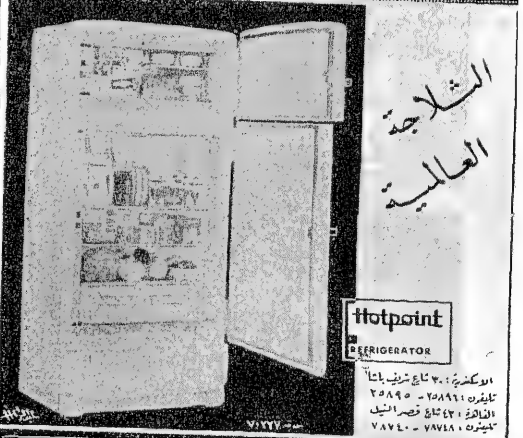 الثلاجة
العالمية
Hotpoint
REFRIGERATOR
الاسكندرية : ٣٠ شارع شريف باشا
تليفون : ٢٥٨٩٦ - ٢٥٨٩٥
القاهرة : ٤٢ شارع قصر النيل
تليفون : ٧٨٧٤٨ - ٧٨٧٤٠